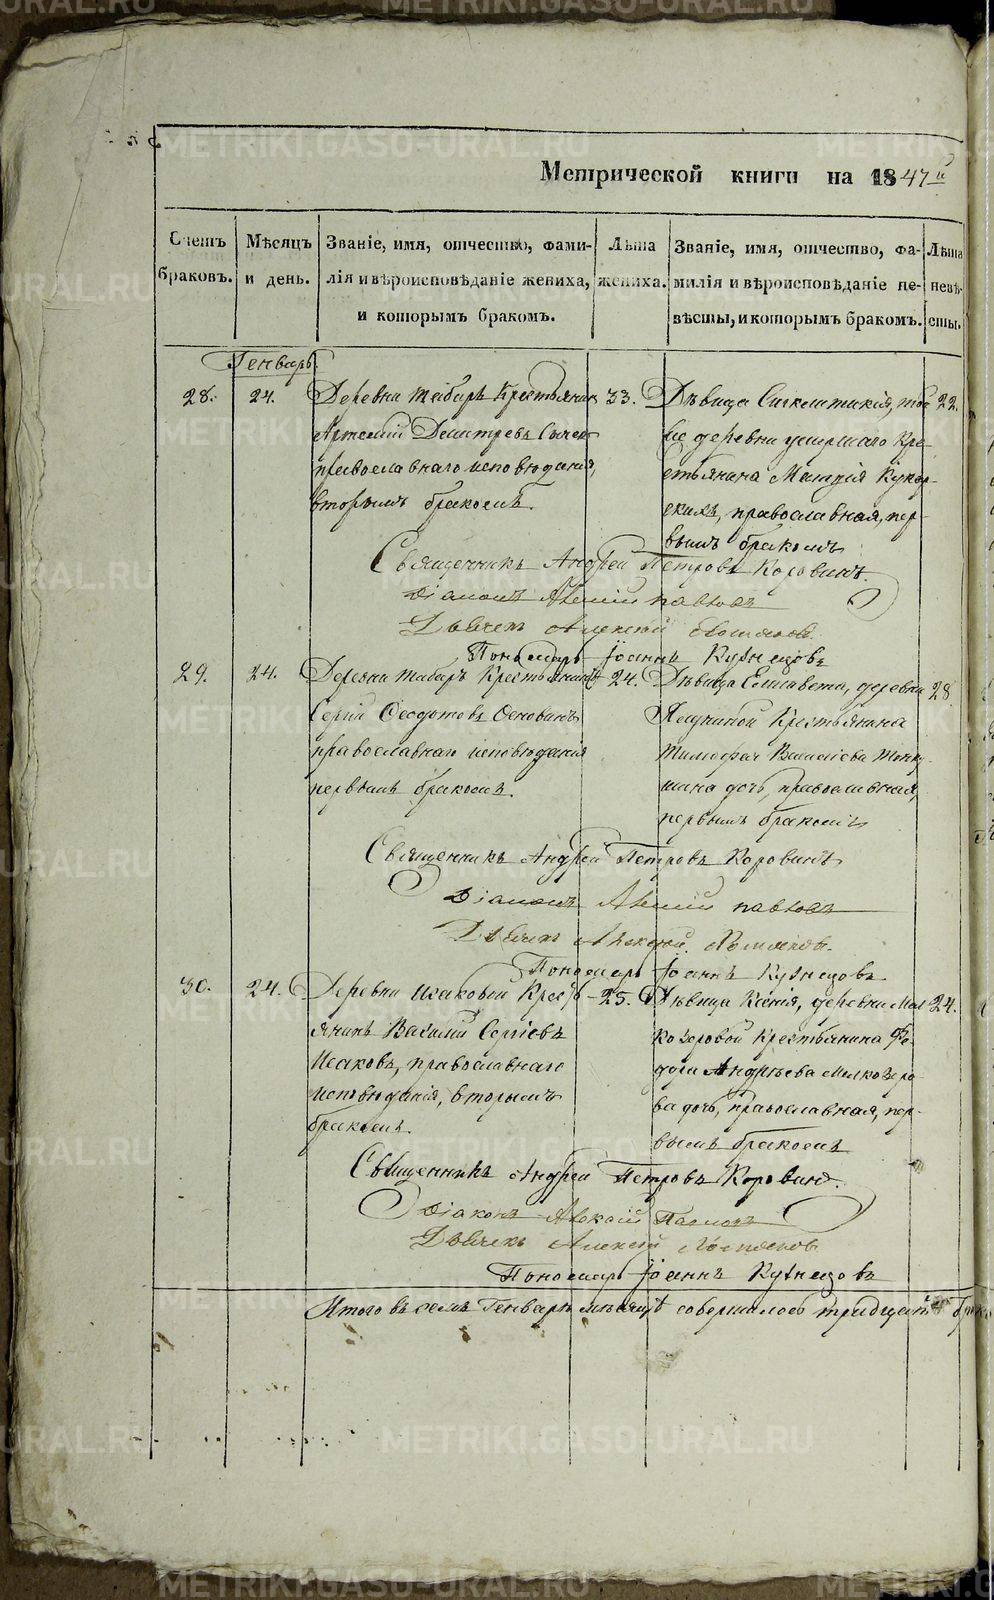 Метрической книги на 1847й
Счетъ браковъ.
Мѣсяцъ и день.
Званіе, имя, отчество, фами-
лія и вѣроисповѣданіе жениха,
и которымъ бракомъ.
Лѣта
жениха.
Званіе, имя, отчество, фа-
милія и вѣроисповѣданіе не-
вѣсты, и которымъ бракомъ.
Лѣта
невѣ-
сты.
Генварь.
28. 24. Деревни Крестьянинъ 33.
Артемій Дмитревъ
православнаго исповѣданія,
вторымъ бракомъ.
Дѣвица 22.
же деревни умершаго Кре-
стьянина
православная, пер-
вымъ бракомъ
Священникъ Андрей Петровъ Коровинъ.
Діаконъ
Дьячекъ Алексѣй
Пономарь Іоаннъ Кузнецовъ
29. 24. Деревни Крестьянинъ 24.
Сергій Ѳеодотовъ
православнаго исповѣданія
первымъ бракомъ.
Дѣвица Елисавета, деревни 28
Крестьянина
Тимоѳея
дочь, православная,
первымъ бракомъ
Священникъ Андрей Петровъ Коровинъ
Діаконъ
Дьячекъ Алексѣй
Пономарь Іоаннъ Кузнецовъ
30. 24. Деревни Исаковой Кресть- 25.
янинъ Василій Сергіевъ
Исаковъ, православнаго
исповѣданія, вторымъ
бракомъ.
Дѣвица Ксенія, деревни Мел- 24.
козеровой Крестьянина Ѳе-
дора Андрѣева Мелкозеро-
ва дочь, православная, пер-
вымъ бракомъ
Священникъ Андрей Петровъ Коровинъ.
Діаконъ
Дьячекъ Алексѣй
Пономарь Іоаннъ Кузнецовъ
Итого въ семъ Генварѣ мѣсяцѣ совершилось тридцать
METRIKI.GASO-URAL.RU